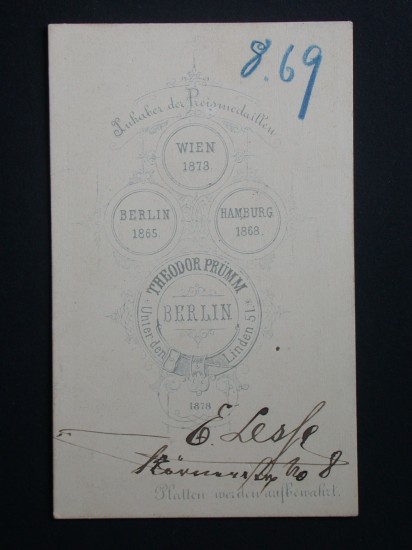 8.69
Inhaber der Preismedaillen
WIEN
1873.
BERLIN
1865.
HAMBURG
1868.
THEODOR PRÜMM
BERLIN
Unter den Linden 51.
1878
E. Lesse
Körnerstr No 8
Platten werden aufbewahrt.